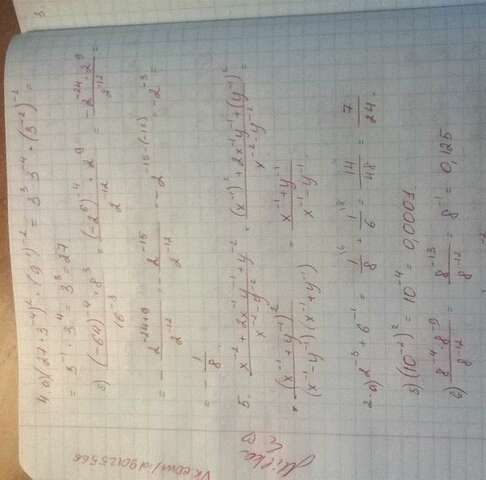 4. а) (27 · 3⁻⁴)² · (9⁻¹)⁻² = 3³ · 3⁻⁴ · (3⁻²)⁻² =
= 3⁻¹ · 3⁴ = 3³ = 27
б) (-64)⁻⁴ · 8³ / 16⁻³ = (-2⁶)⁻⁴ · 2⁹ / 2⁻¹² = - 2⁻²⁴ · 2⁹ / 2⁻¹² =
= - 2⁻²⁴⁺⁹ / 2⁻¹² = - 2⁻¹⁵ / 2⁻¹² = -2⁻¹⁵⁻⁽⁻¹²⁾ = -2⁻³ =
= - 1/8.
5. x⁻² + 2x⁻¹y⁻¹ + y⁻² / x⁻² - y⁻² = (x⁻¹)² + 2x⁻¹y⁻¹ + (y⁻¹)² / x⁻² - y⁻² =
= (x⁻¹ + y⁻¹)² / (x⁻¹ - y⁻¹)(x⁻¹ + y⁻¹) = x⁻¹ + y⁻¹ / x⁻¹ - y⁻¹
2. а) 2⁻³ + 6⁻¹ = 1/8 + 1/6 = 14/48 = 7/24.
б) (10⁻²)² = 10⁻⁴ = 0,0001
в) 8⁻⁴ · 8⁻⁹ / 8⁻¹² = 8⁻¹³ / 8⁻¹² = 8⁻¹ = 0,125
vk.com/id